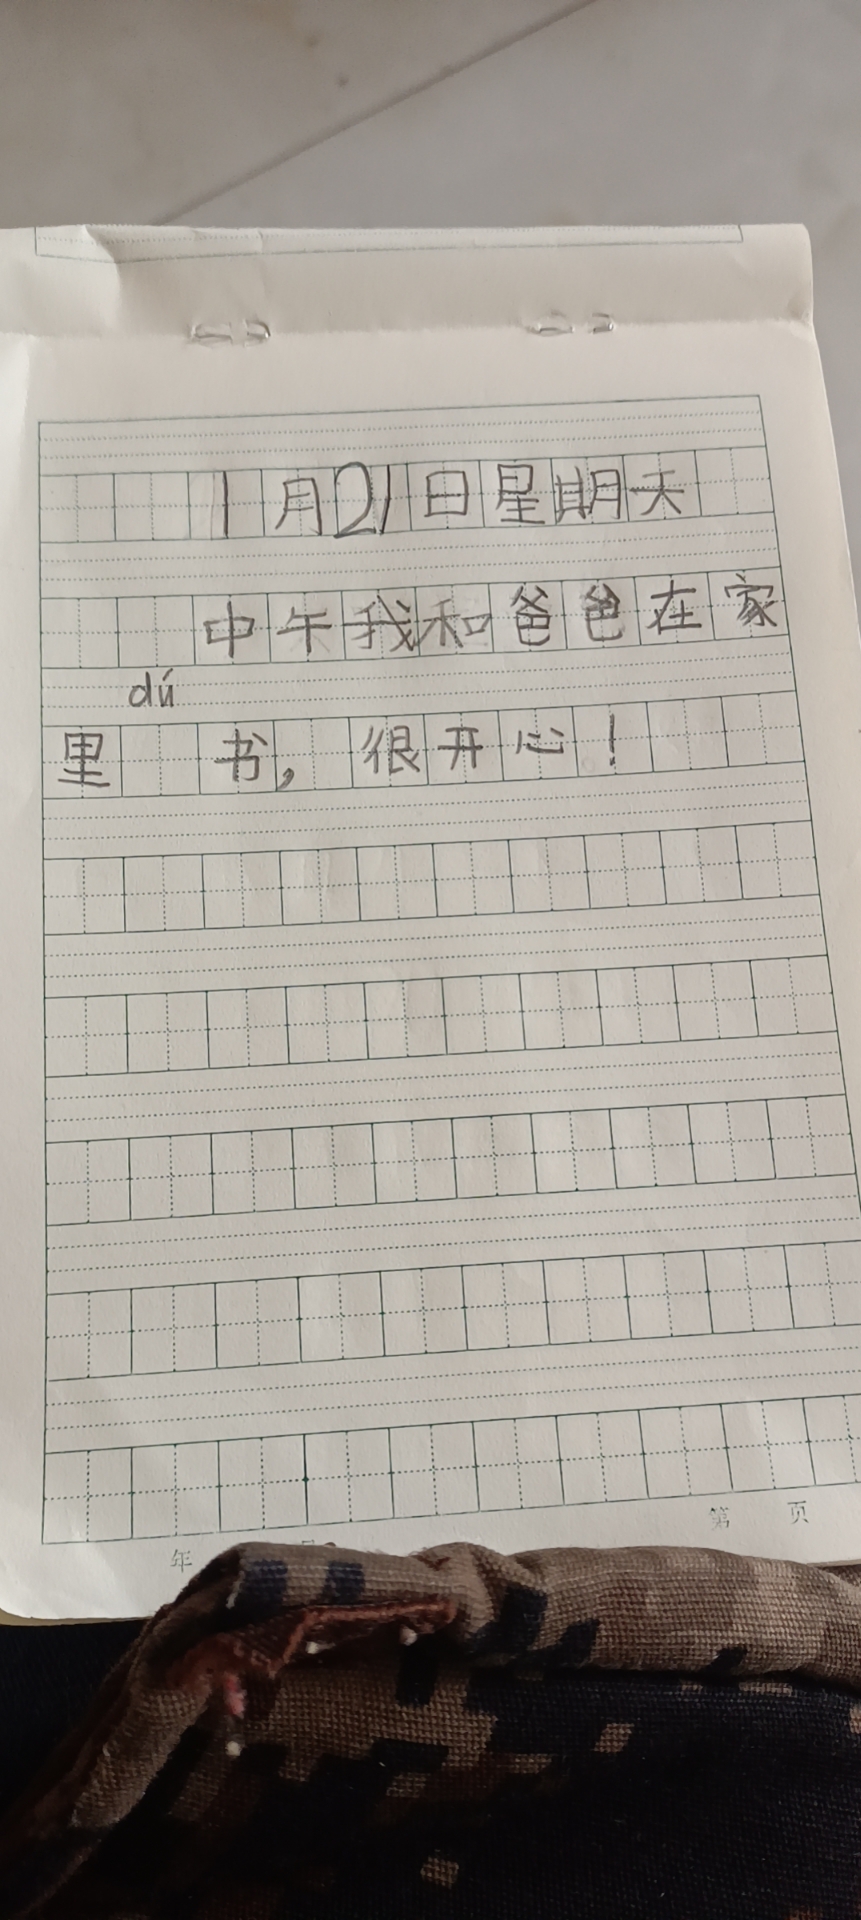 1月21日星期天
中午我和爸爸在家
dú
里 书，很开心！
年
第 页